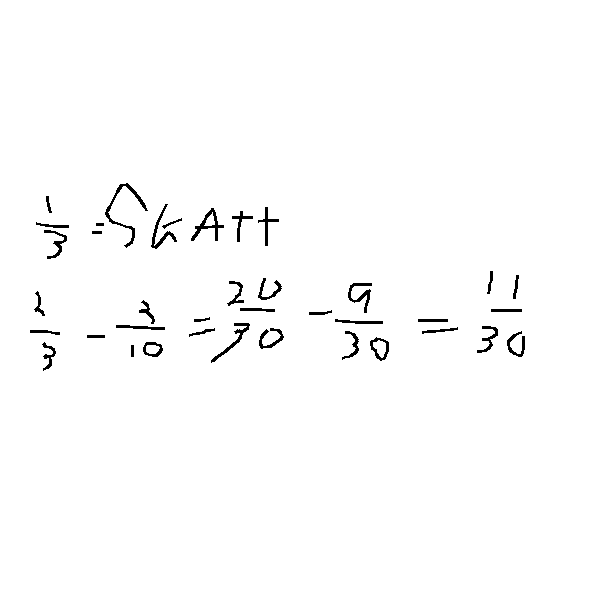 1/3 = SKATT
2/3 - 3/10 = 20/30 - 9/30 = 11/30